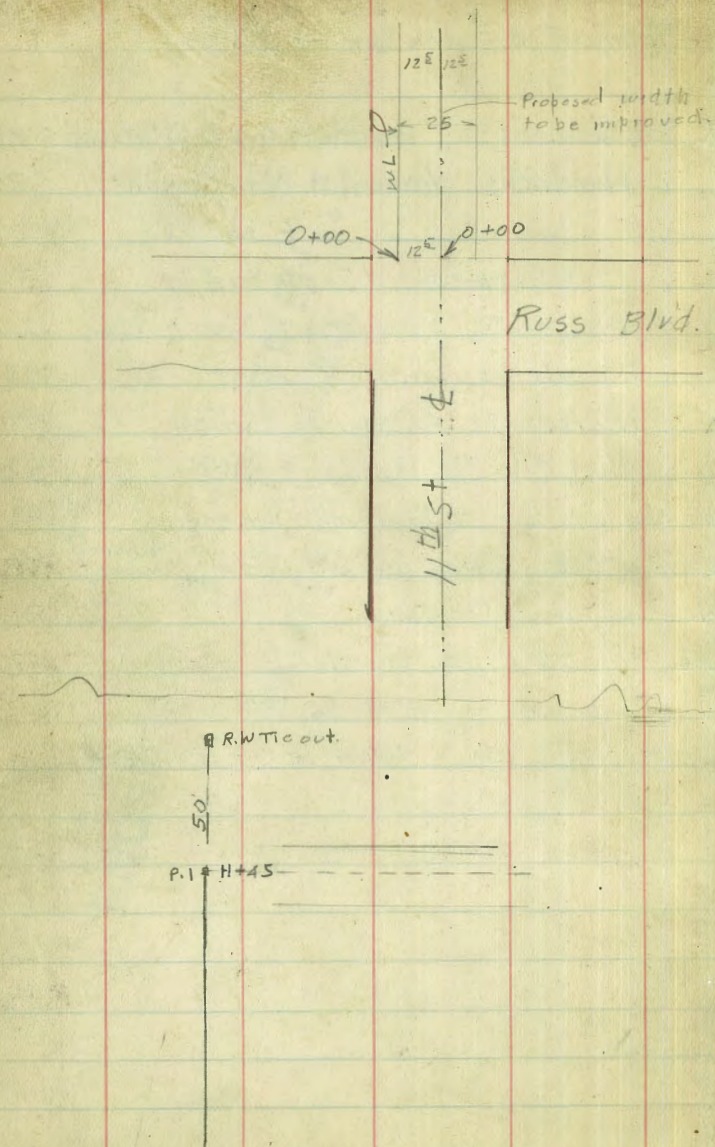 12⁵ 12⁵
Proposed width
to be improved.
25
WL
0+00
12⁵
0+00
Russ Blvd.
11th St
℄
R.W Tie out.
50'
P.I
H+45